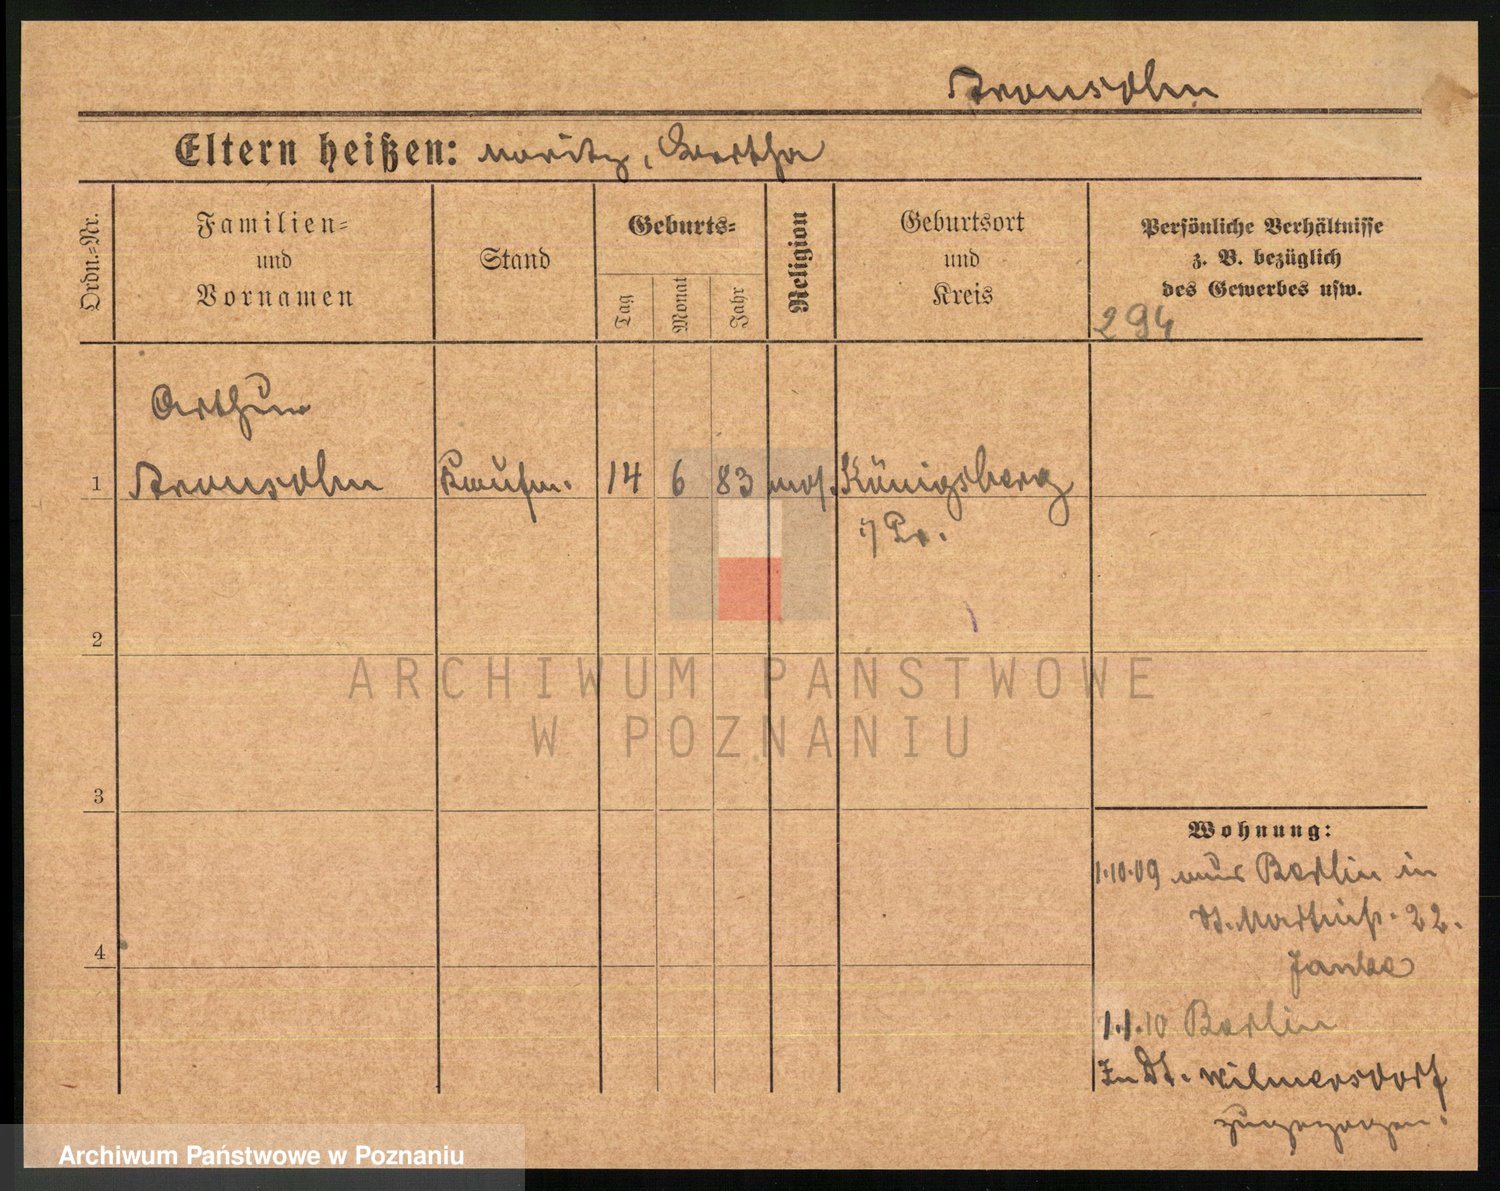 Aronsohn
Eltern heißen: Moritz, Bertha
Ordn.=Nr.
Familien=
und
Vornamen
Stand
Geburts=
Tag
Monat
Jahr
Religion
Geburtsort
und
Kreis
Persönliche Verhältnisse
z. B. bezüglich
des Gewerbes usw.
294
Arthur
1 Aronsohn Kaufm. 14 6 83 mos. Königsberg
i/Pr.
2
3
4
Wohnung:
1.10.09 aus Berlin in
St. Martinstr. 22.
Janke
1.1.10 Berlin
In Dt. Wilmersdorf
zugezogen.
ARCHIWUM PAŃSTWOWE
W POZNANIU
Archiwum Państwowe w Poznaniu